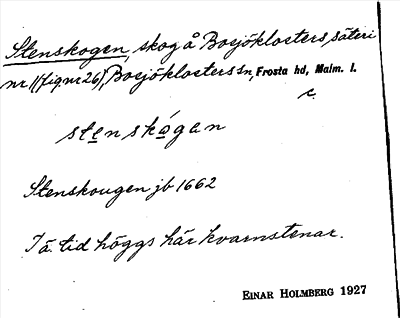 Stenskogen, skog å Bosjöklosters säteri
nr 1 (fig nr 26), Bosjöklosters sn, Frosta hd, Malm. l.
c.
stenskógan
Stenskougen jb 1662
I ä. tid höggs här kvarnstenar.
EINAR HOLMBERG 1927